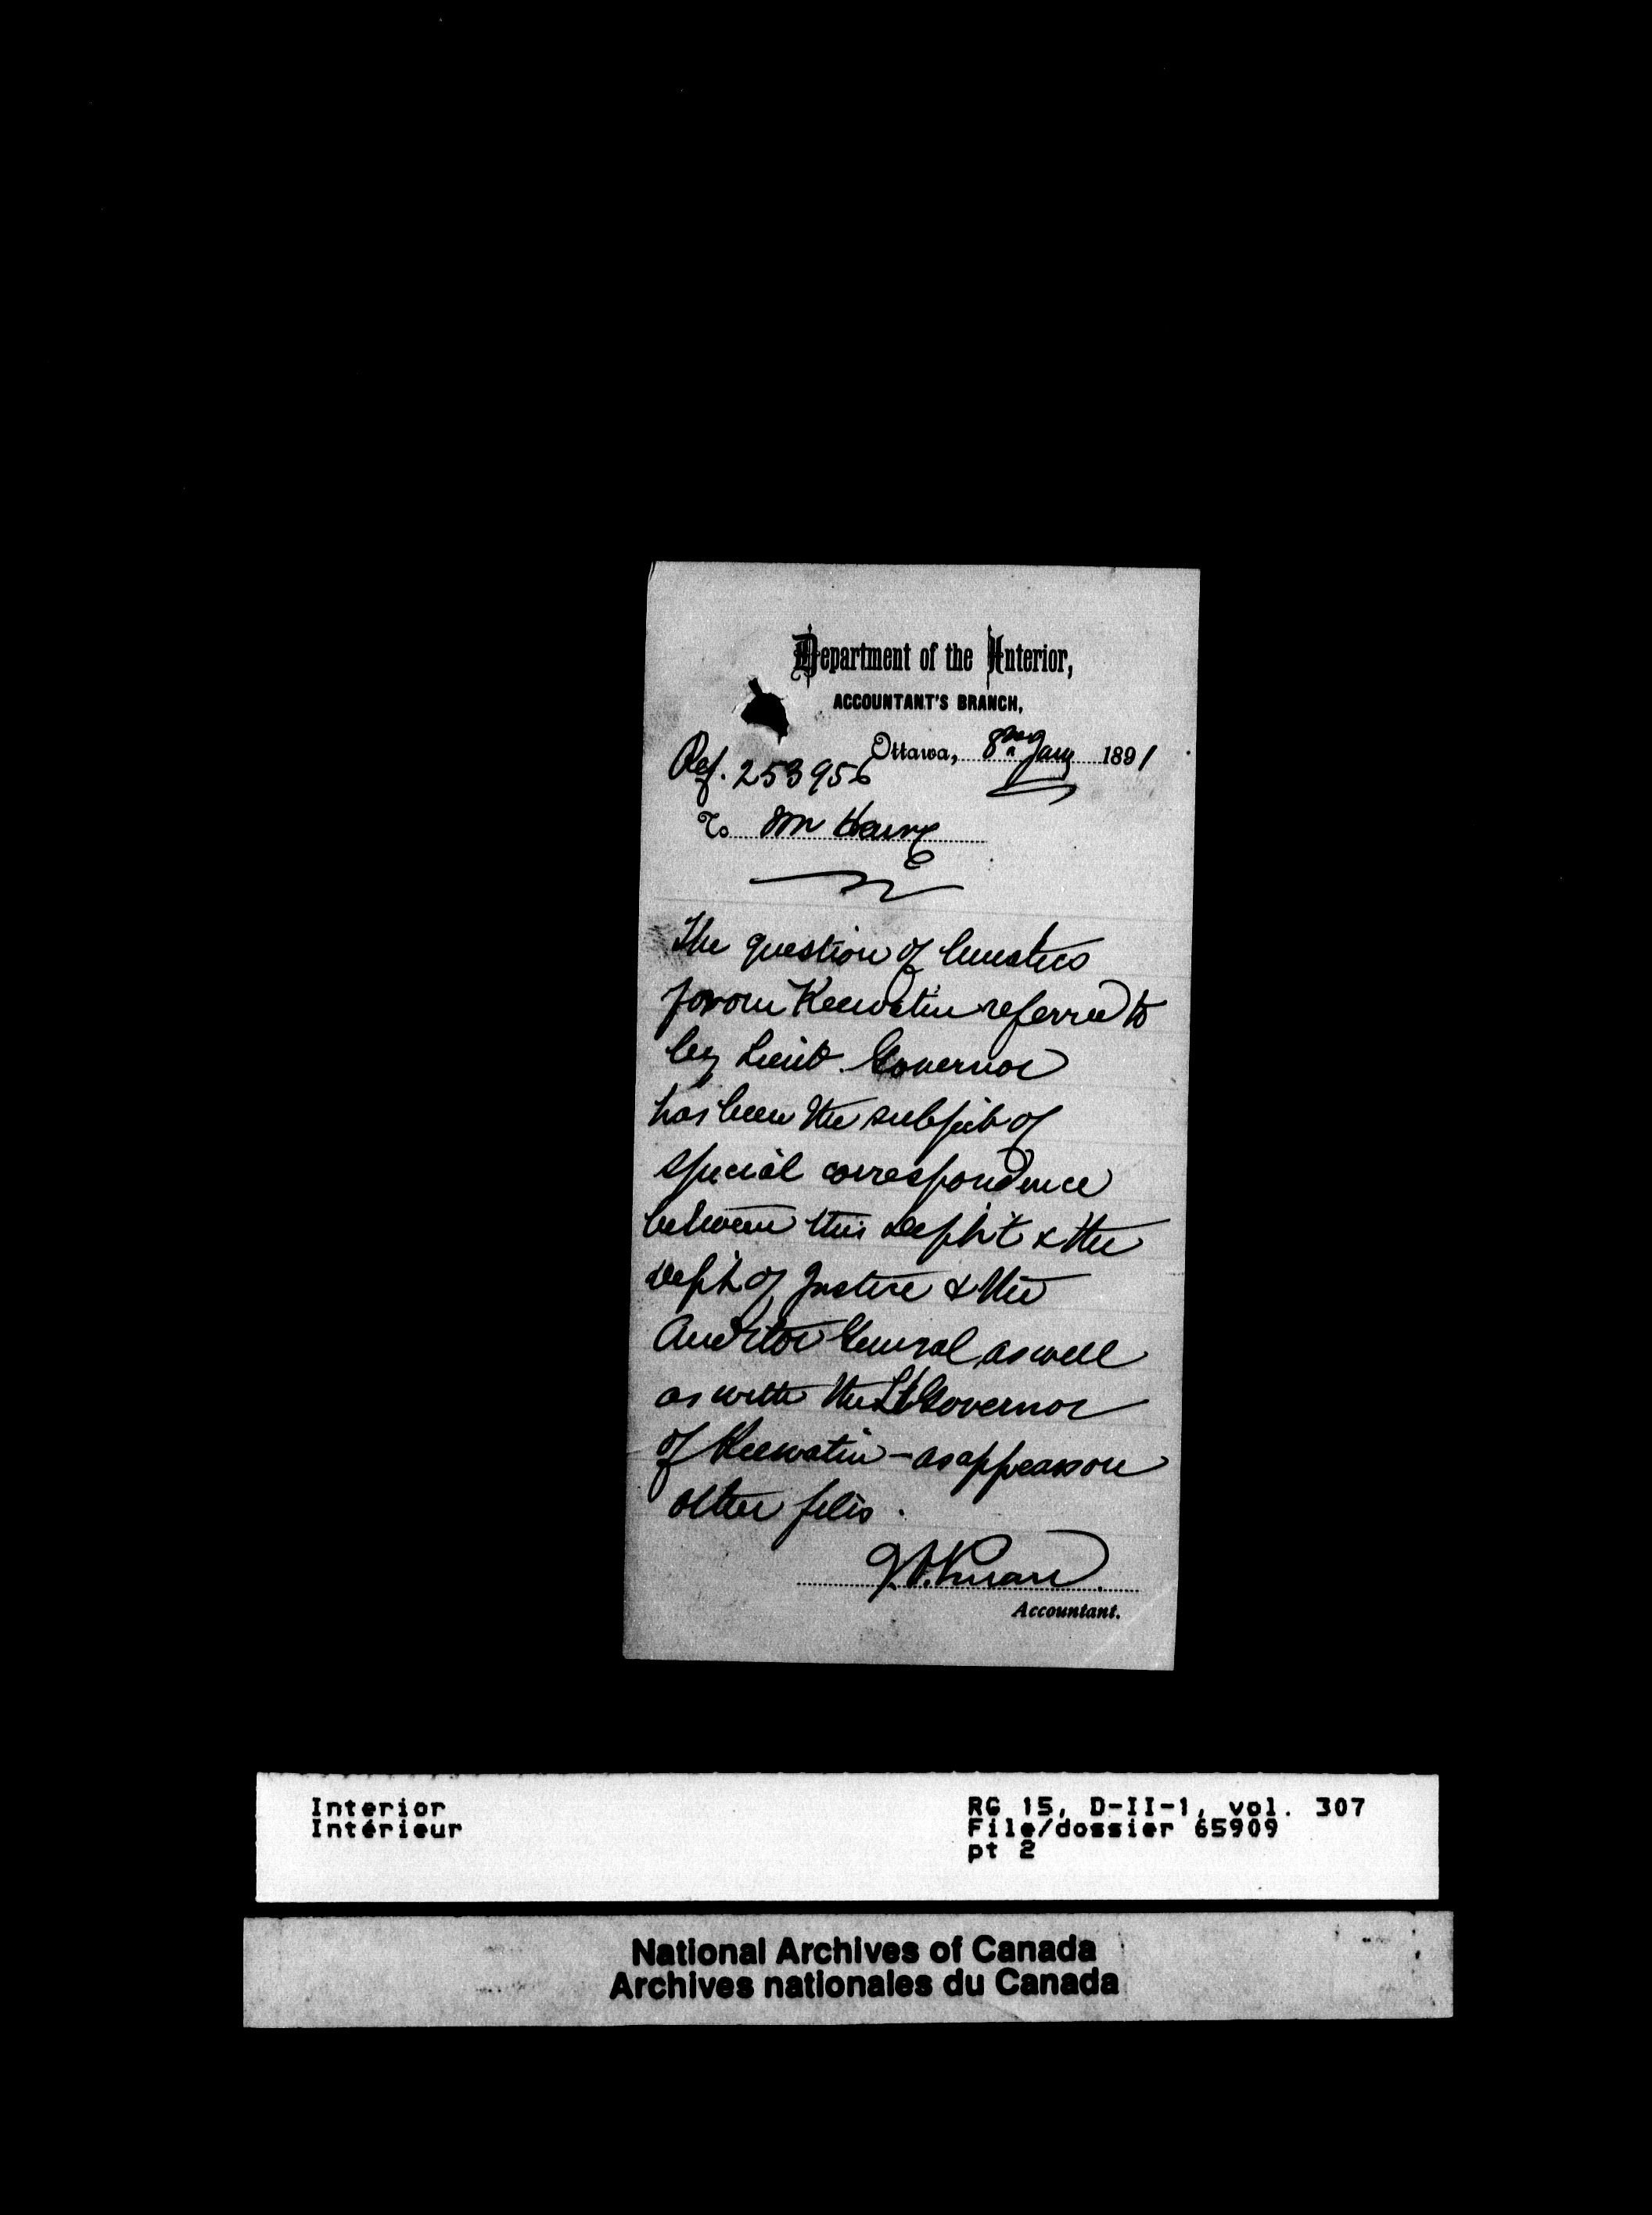 Department of the Interior,
ACCOUNTANT'S BRANCH,
Ottawa, 8th Jany 1891
Ref. 253956
To Mr
The question of lunatics
from Keewatin referred to
by Lieut. Governor
has been the subject of
special correspondence
between this Dep't & the
Dep't of Justice & the
Auditor General as well
as with the Lt Governor
of Keewatin – as appears on
other files.
Accountant.
Interior
Intérieur
RG 15, D-II-1, vol. 307
File/dossier 65909
pt 2
National Archives of Canada
Archives nationales du Canada